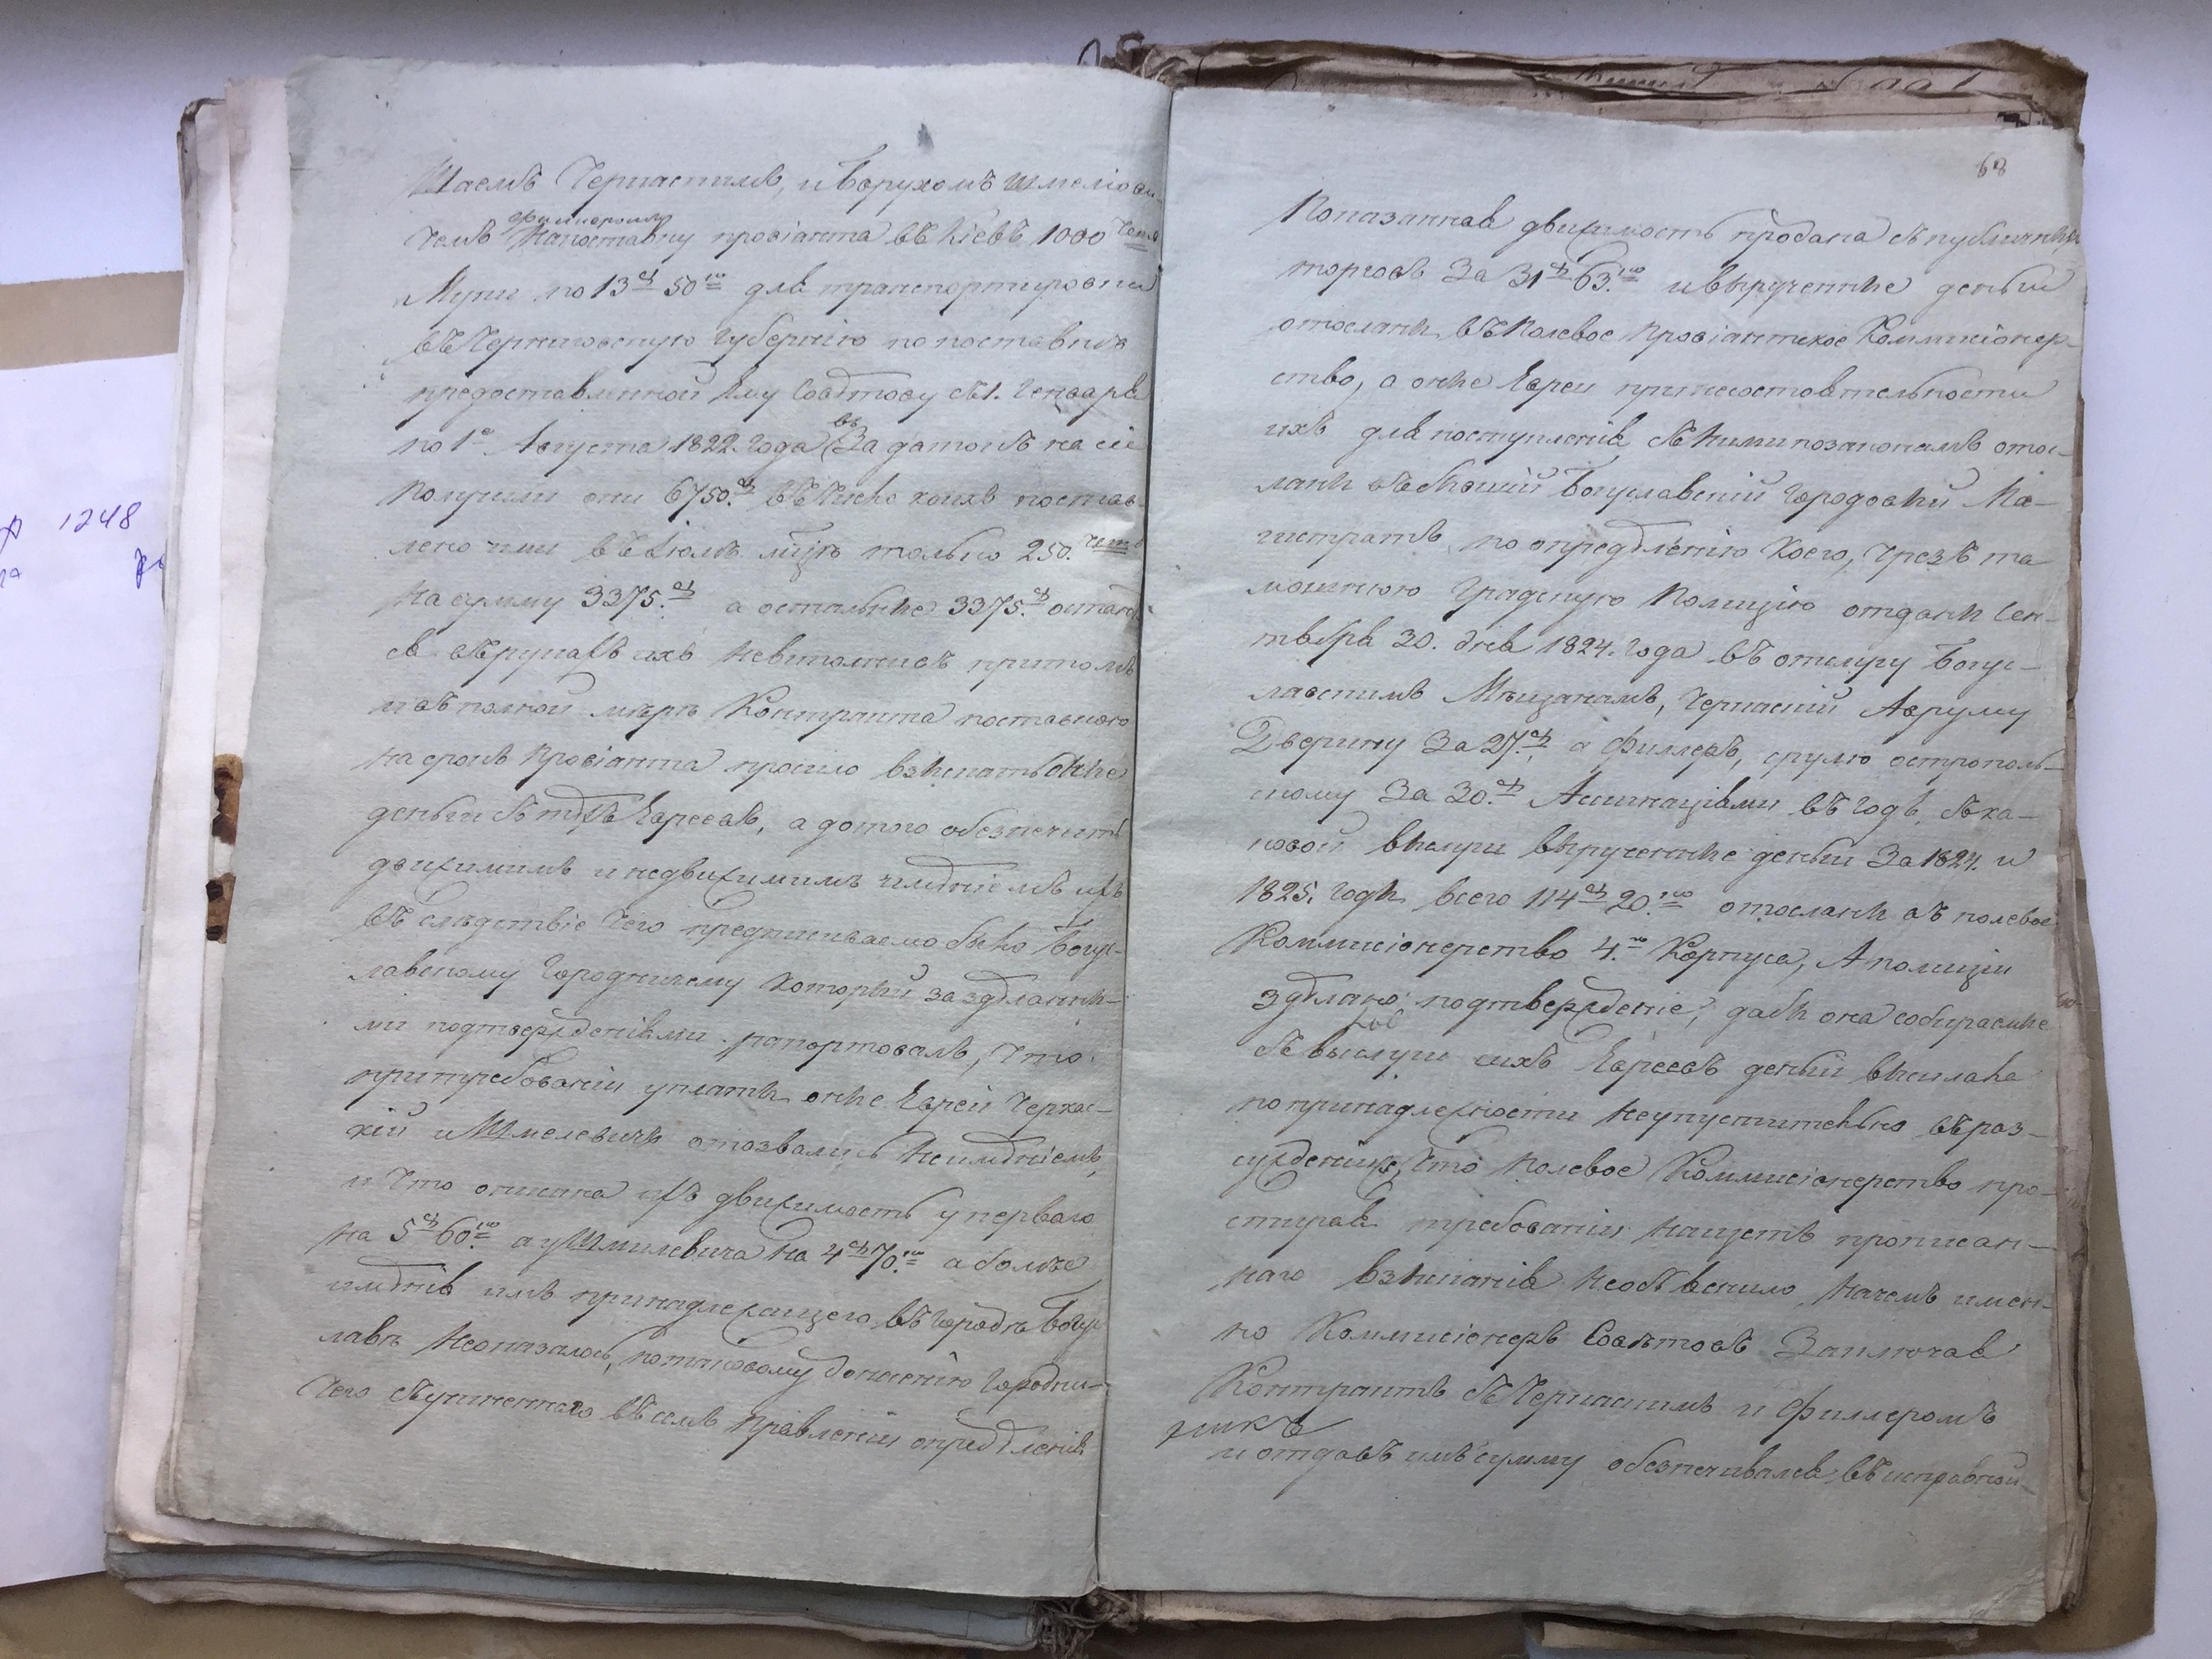 Шаемъ Черкаскимъ, и Борухомъ Шмелiови-
Филлеромъ
чемъ напоставку провiанта въ Кiевъ 1000 четв
Муки по 13 ру 50 ко для транспортировки
въ Черниговскую Губернiю по поставкѣ
предоставленной ему Совѣтову съ 1. Генваря
въ
по 1е Августа 1822. года За датокъ на сiе
получили они 6750. ру въ число коихъ постав-
лено ими въ Iюлѣ мцѣ только 250. четв
на сумму 3375. ру а остальные 3375. ру остают
ся въ рукахъ ихъ невиполнивъ притомъ
и въ полной мѣрѣ Контракта поставкою
на срокъ провiанта просило взыскать оные
деньги съ тѣхъ Евреевъ, а до того обезпечить
движимимъ и недвижимимъ имѣнiемъ ихъ
въ слѣдствiе чего предписиваемо было Богус-
лавскому Городничему который за здѣланны-
ми подтвержденiями рапортовалъ, что
притребованiи уплаты оные Евреи Черкас-
кiй и Шмелевичъ отозвались неимѣнiемъ,
и что описана ихъ движимость у перваго
на 5 ру 60. ко а у Шмилевича на 4 ру 70. ко а болѣе
имѣнiя имъ принадлежащего въ городѣ Богус
лавѣ неоказалось, по таковому донесенiю Городни-
чего съ учиненнаго въ семъ Правленiи опредѣленiя
68
Показанная движимость продана съ публичныхъ
торговъ За 31 ру 63. ко и вырученные деньги
отосланы въ Полевое Провiантское Коммисiонер-
ство, а оные Евреи при несостоятельности
ихъ для поступленiя съ ними по законамъ отос-
ланы въ бывшiй Богуславскiй Городовый Ма-
гистратъ, по опредѣленiю коего, чрезъ та
мошнюю Градскую Полицiю отданы Сен-
тября 30. дня 1824. года въ отслугу Богус-
лавскимъ Мѣщанамъ, Черкаскiй Авруму
Дверину За 27. ру, а Филлеръ, Срулю Острополь-
скому За 30. ру Ассигнацiями въ годъ, съ ка-
ковой выслуги вырученные деньги За 1824. и
1825. годы всего 114 ру 20. ко отосланы въ полевое
Коммисiонерство 4. го Корпуса, А полицiи
здѣлано подтвержденiе, дабы она собираемые
съ выслуги сихъ Евреевъ деньги высилала
по принадлежности неупустительно въ раз-
сужденiи же, что Полевое Коммисiонерство про-
стирая требованiи насщетъ прописан-
наго взысканiя необъяснило, начемъ имен-
но Коммисiонеръ Совѣтовъ Заключая
Контрактъ съ Черкаскимъ и Филлеромъ
и отдавъ имъ сумму обезпечивался въ исправной